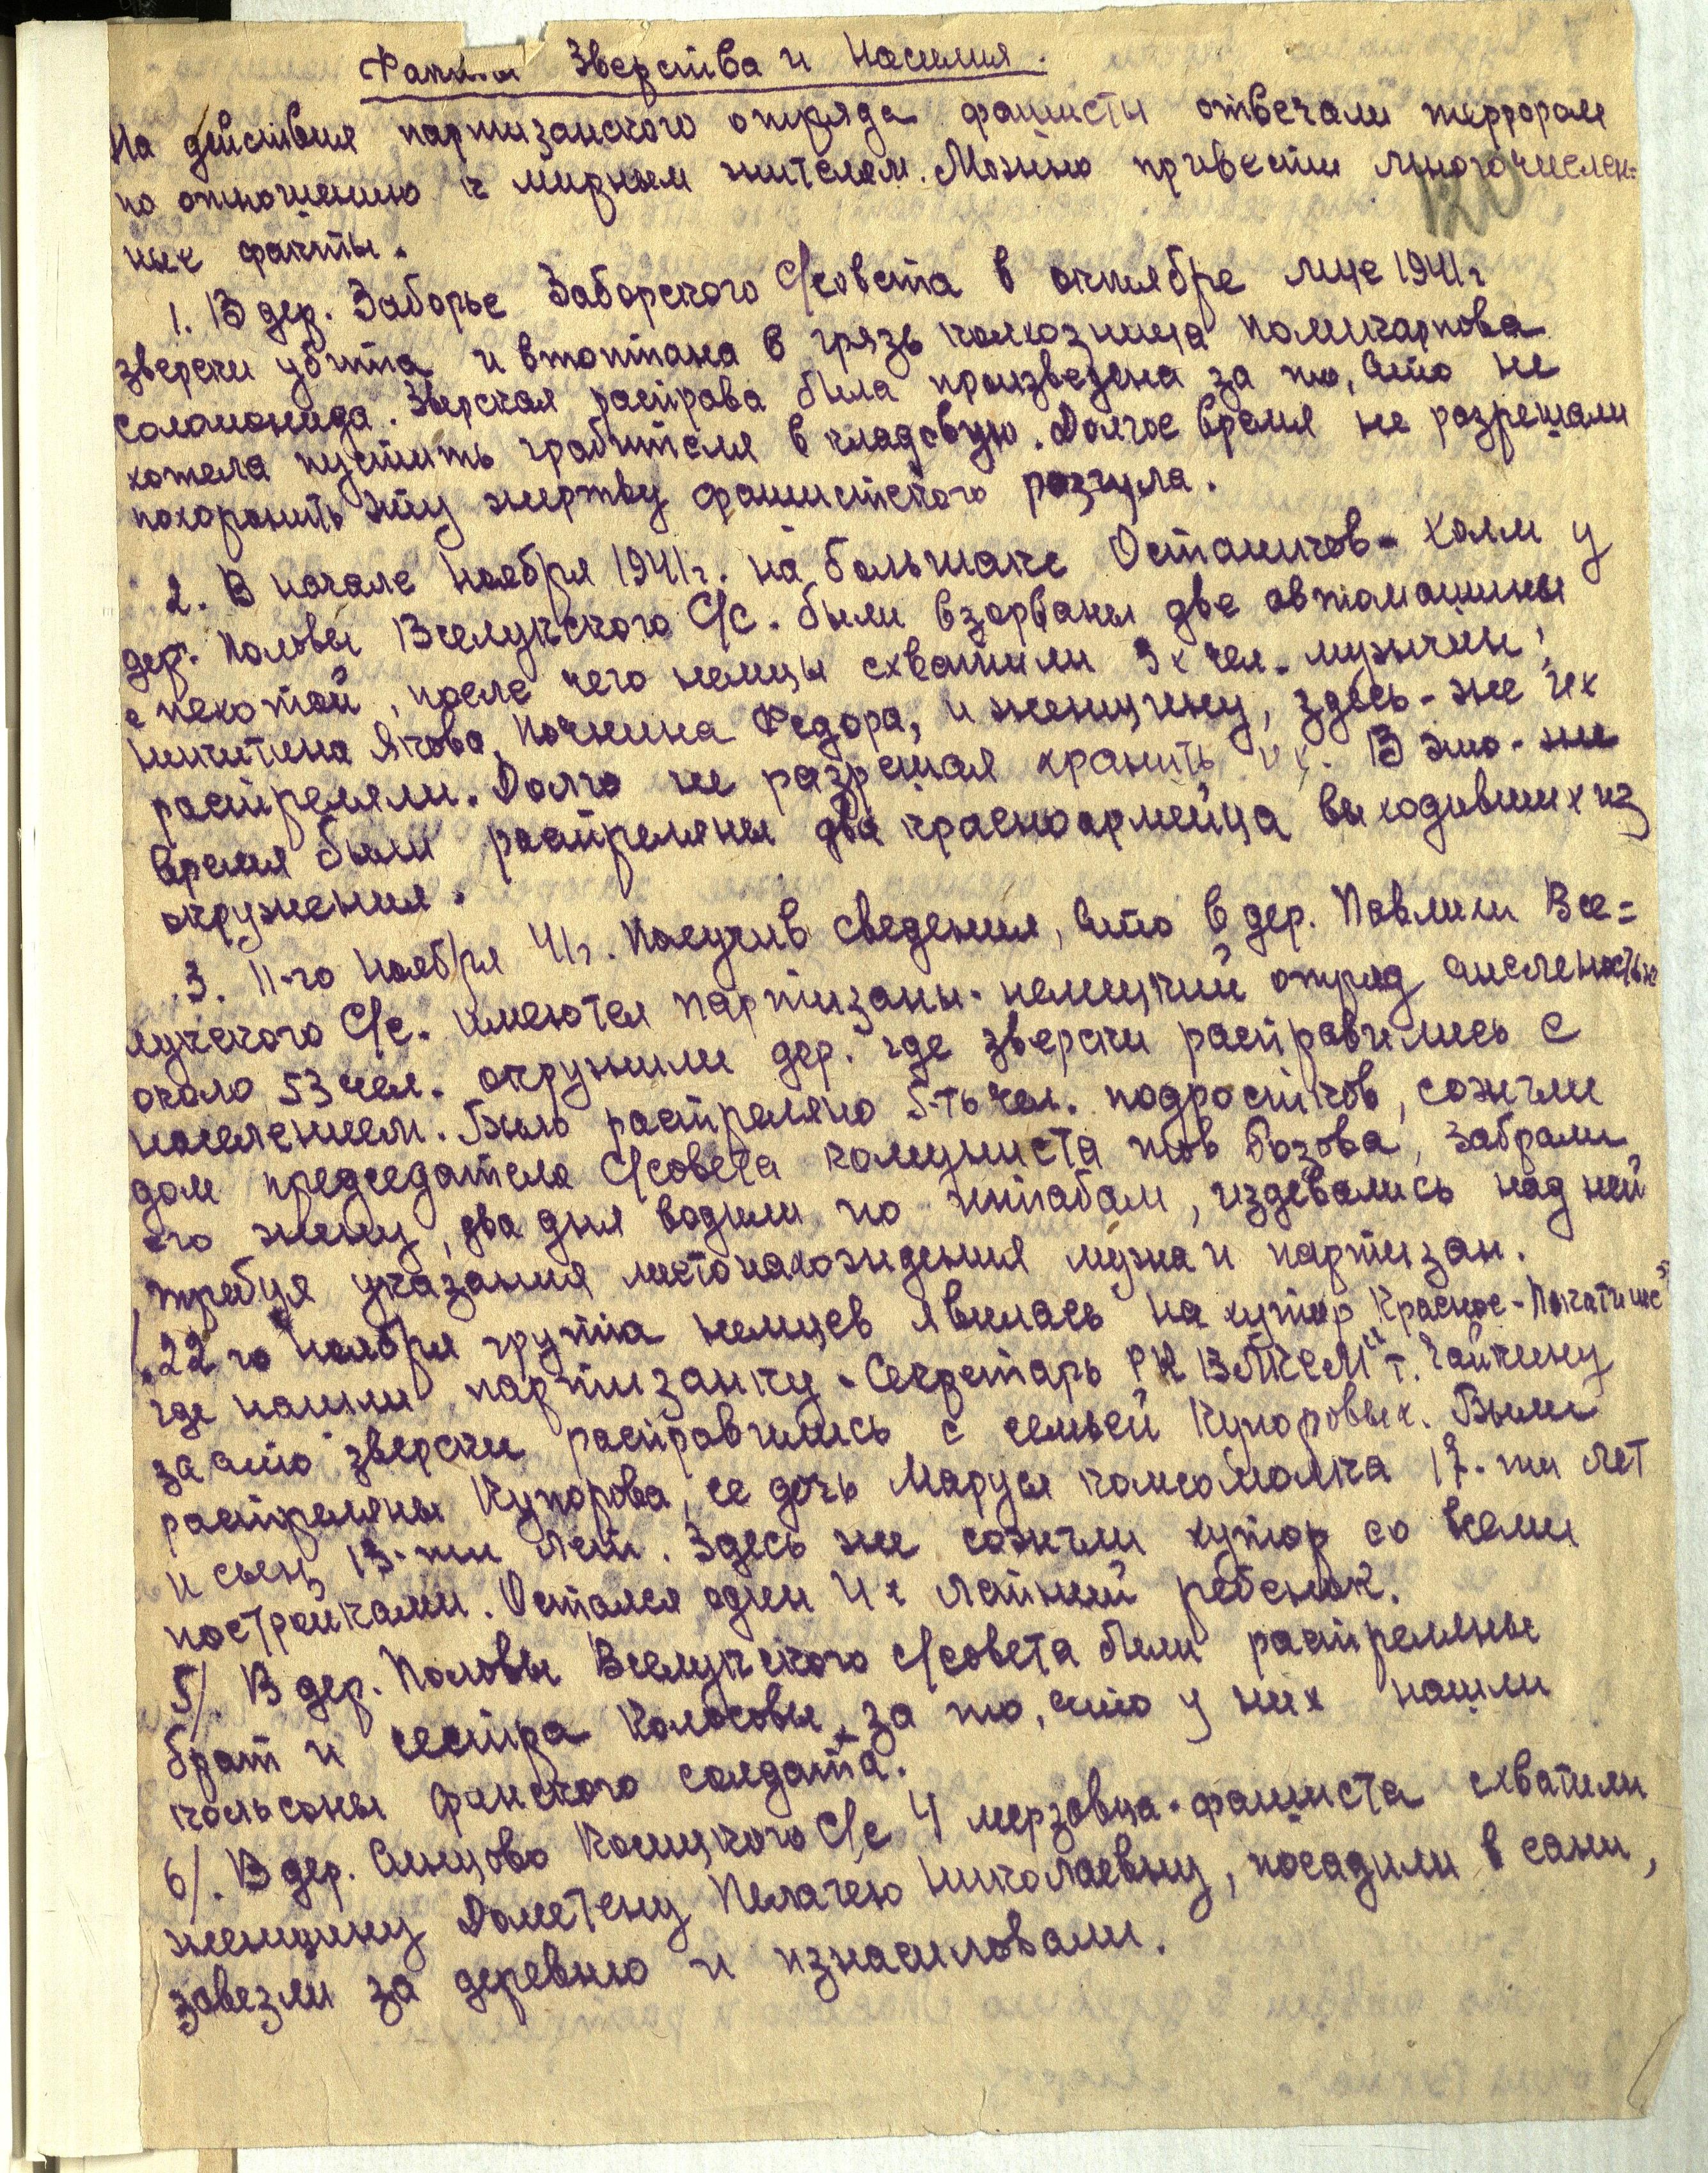 Факты Зверства и Насилия.
На действия партизанского отряда фашисты отвечали террором
по отношению к мирным жителям. Можно привести многочислен-
120
ные факты.
1. В дер. Заборье Заборского С/совета в октябре м-це 1941 г
зверски убита и втоптана в грязь колхозница Поликарпова
Соломонида. Зверская расправа была произведена за то, что не
хотела пустить грабителя в кладовую. Долгое время не разрешали
похоронить эту жертву фашистского разгула.
2. В начале ноября 1941 г. на большаке Осташков-Холм у
дер. Половы Вселукского С/С. были взорваны две автомашины
с пехотой, после чего немцы схватили 3х чел. мужчин:
Никитина Якова, Почкина Федора, и женщину, здесь-же их
расстреляли. Долго не разрешая хранить их. В это-же
время были расстреляны два красноармейца выходивших из
окружения.
3. 11-го ноября 41 г. Получив сведения, что в дер. Павлихи Все=
лукского С/с. имеются партизаны-немецкий отряд численностью
около 53 чел. окружили дер. где зверски расправились с
населением. Было расстреляно 5-ть чел. подростков, сожгли
дом председателя С/совета комуниста тов Бозова, забрали
его жену, два дня водили по штабам, издевались над ней
требуя указания местонахождения мужа и партизан.
22 го ноября группа немцев явилась на хутор Красное-Покатище
где нашли партизанку-Секретарь РК ВЛКСМ т. Чайкину
за что зверски расправились с семьей Купоровых. Были
расстреляны Купорова, ее дочь Маруся комсомолка 17-ти лет
и сын, 13-ти лет. Здесь же сожгли хутор со всеми
постройками. Остался один 4х летний ребенок.
5/. В дер. Половы Вселукского с/совета были расстреляные
брат и сестра Колосовы за то, что у них нашли
кальсоны финского солдата.
6/. В дер. Синцово Кошицкого С/с 4 мерзовца-фашиста схватили
женщину Дометену Пелагею Николаевну, посадили в сани,
завезли за деревню и изнасиловали.